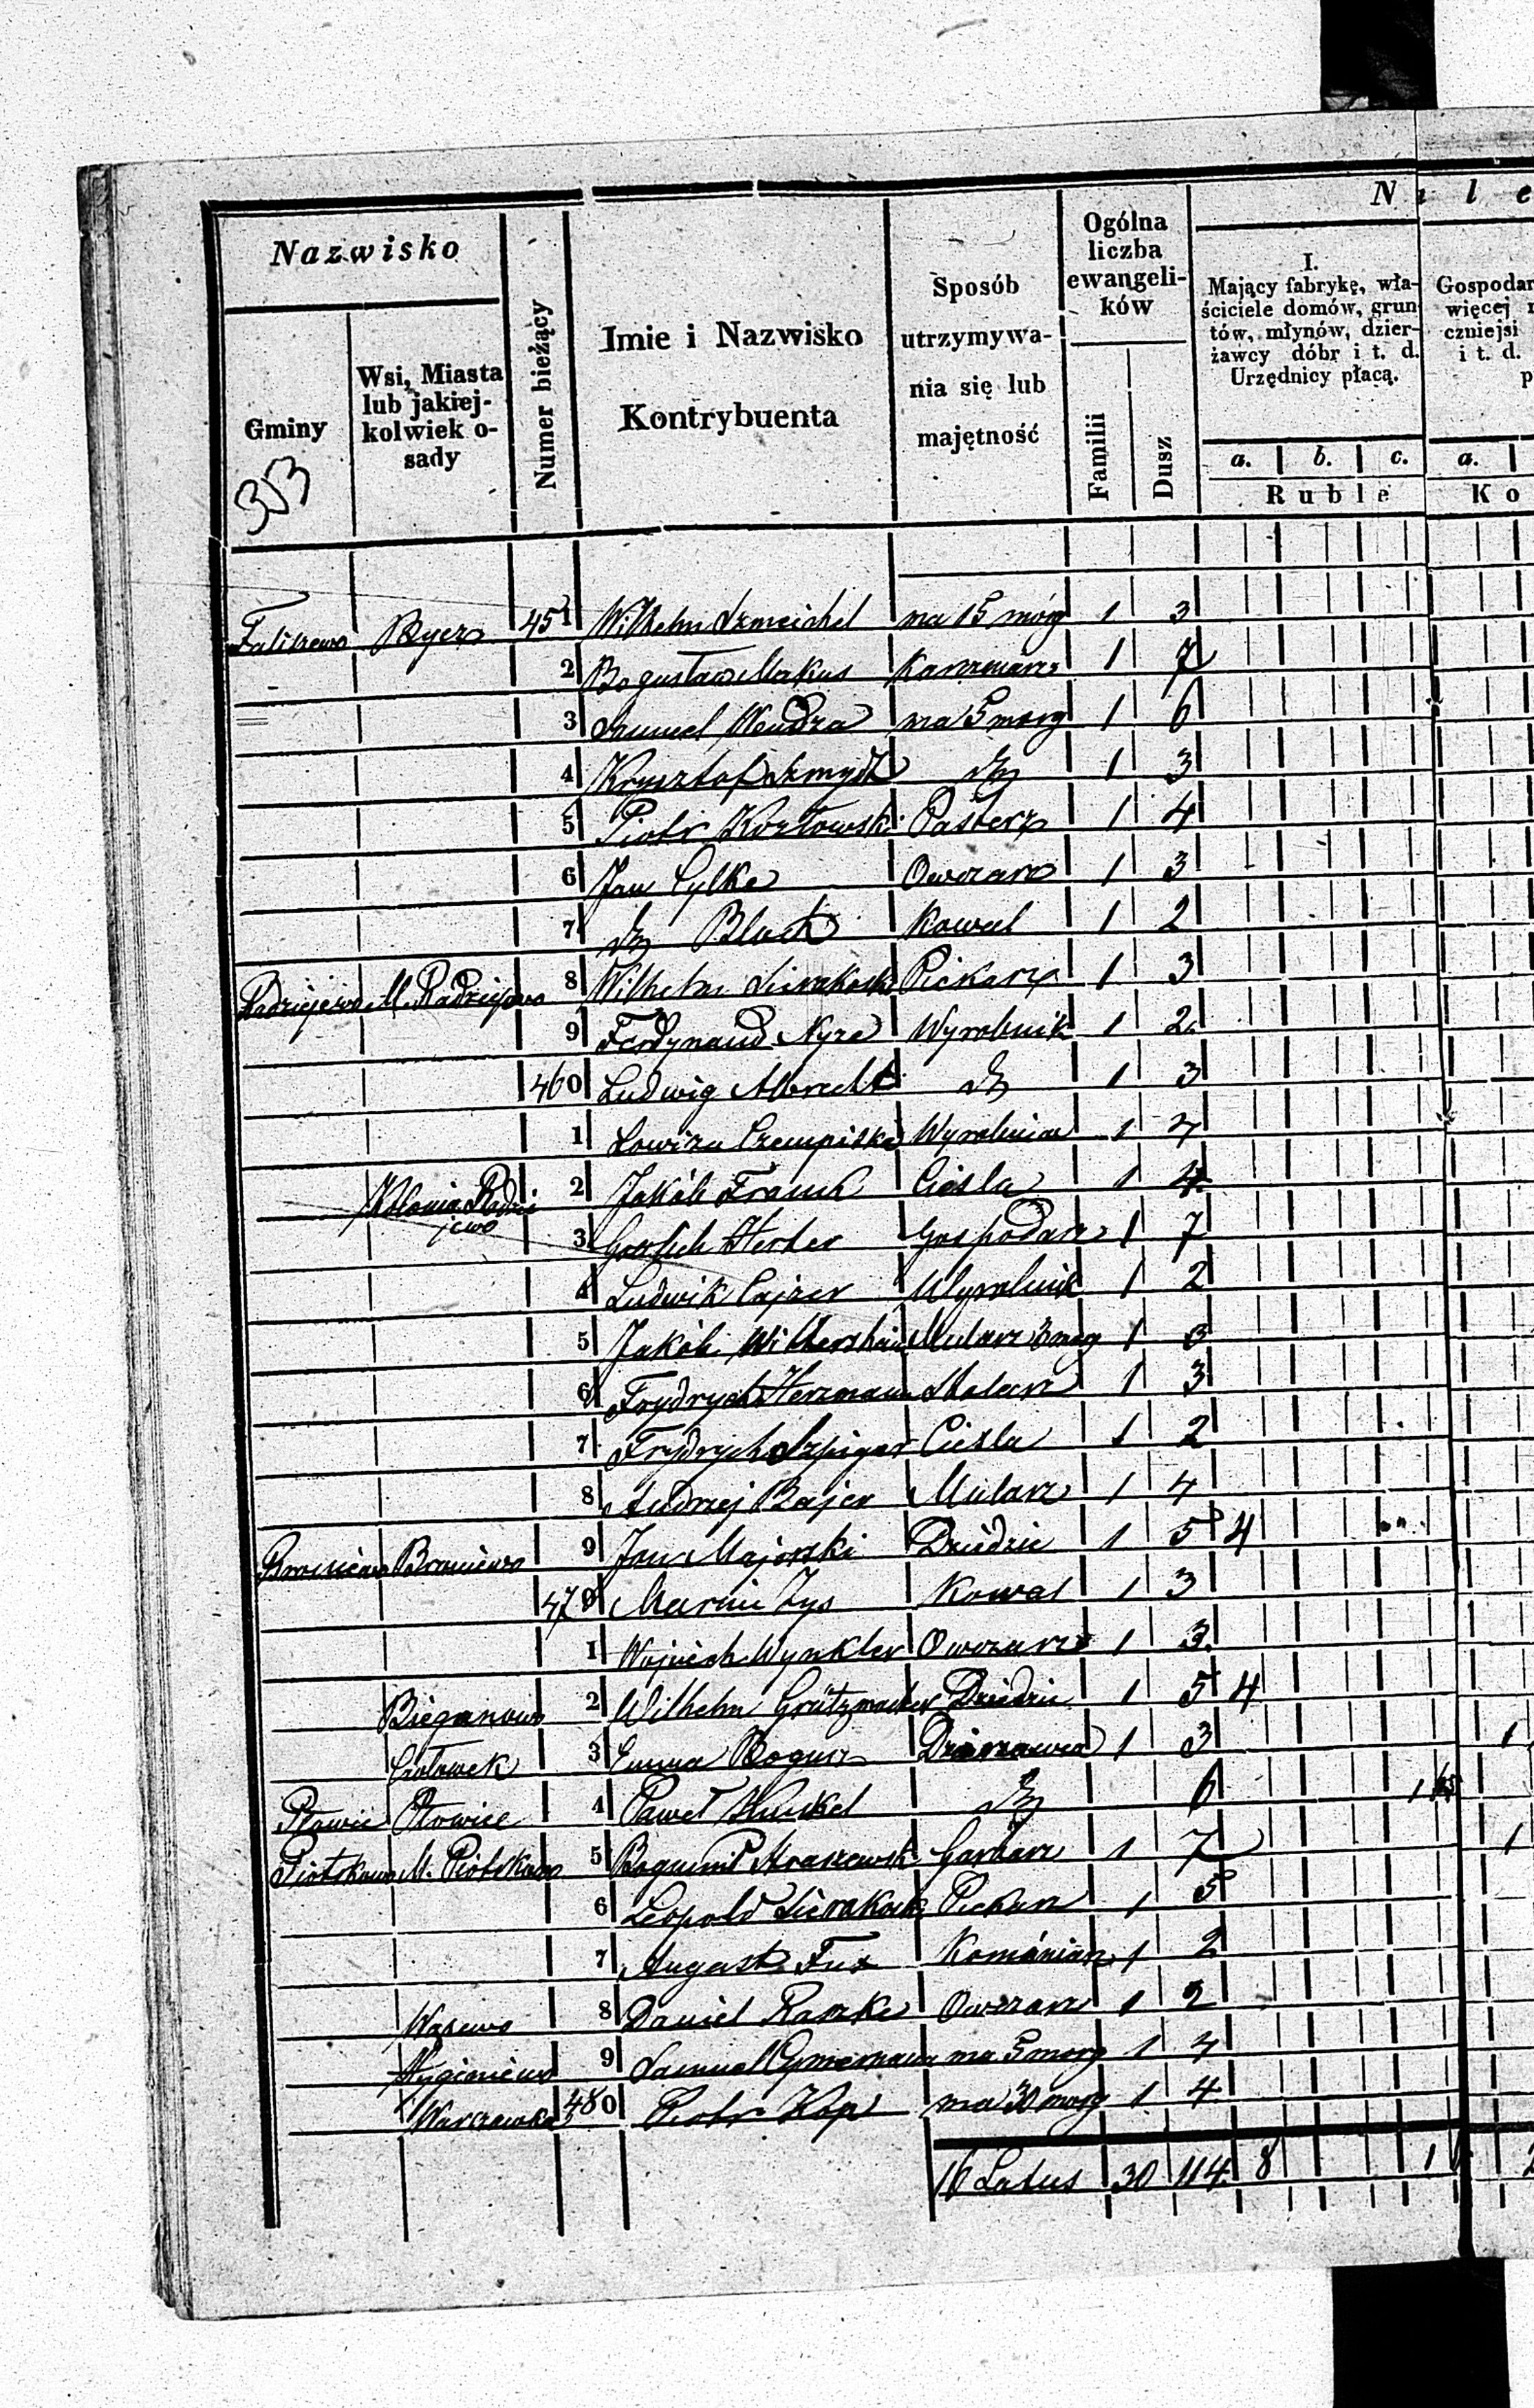 Nazwisko
Gminy
Wsi, Miasta
lub jakiej-
kolwiek o-
sady
Numer bieżący
Imie i Nazwisko
Kontrybuenta
Sposób
utrzymywa-
nia się lub
majętność
Ogólna
liczba
ewangeli-
ków
Familii
Dusz
N a l e
I.
Mający fabrykę, wła-
ściciele domów, grun
tów, młynów, dzier-
żawcy dóbr i t. d.
Urzędnicy płacą.
a. b. c.
Ruble
Gospodar
więcej
czniejsi
i t. d.
p
a.
Ko
353
Faliszewo Byez 451 Wilhelm Szmeichel ma 15 mórg 1 3
2 Bogusław Markus Karczmarz 1 7
3 Samuel Wendza ma 5 morg 1 6
4 Krysztof Szmydt 1 3
5 Piotr Kozłowski Pasterz 1 4
6 Jan Cylke Owczarz 1 3
7 Block Kowal 1 2
Radziejewo M. Radziejewo 8 Wilhelm Sierakoski Piekarz 1 3
9 Ferdynand Nyze Wyrobnik 1 2
460 Ludwig Albrecht 1 3
1 Lowiza Czempiska Wyrobnica 1 4
Kolonia Radzie
jewo 2 Jakób Frank Cieśla 1 4
3 Gottlieb Herter Gospodarz 1 7
4 Ludwik Cajzer Wyrobnik 1 2
5 Jakób Mularz 3 morg 1 3
6 Frydrych Herzmann Stolarz 1 3
7 Frydrych Szpiger Cieśla 1 2
8 Andrzej Bajer Mularz 1 4
Broniewo Broniewo 9 Jan Majorski Dziedzic 1 5 4
470 Marcin Zys Kowal 1 3
1 Wojciech Wynkler Owczarz 1 3
Bieganowo 2 Wilhelm Grützmacher Dziedzic 1 5 4
Czołowek 3 Emma Bogusz Dzierzawca 1 3 1
Płowce Płowce 4 Paweł Kunkel 6 1
Piotrkowo M. Piotrkowo 5 Bogumił Kraszewski Garbarz 1 7 1
6 Leopold Sierakoski Piekarz 1 5
7 August Fux Kominiarz 1 2
Wąsewo 8 Daniel Raszke Owczarz 1 2
Hygieniewo 9 Samuel Cymerman ma 5 morg 1 4
Warszawka 480 Piotr Kop ma 30 morg 1 4
16 Latus 30 114 8 1